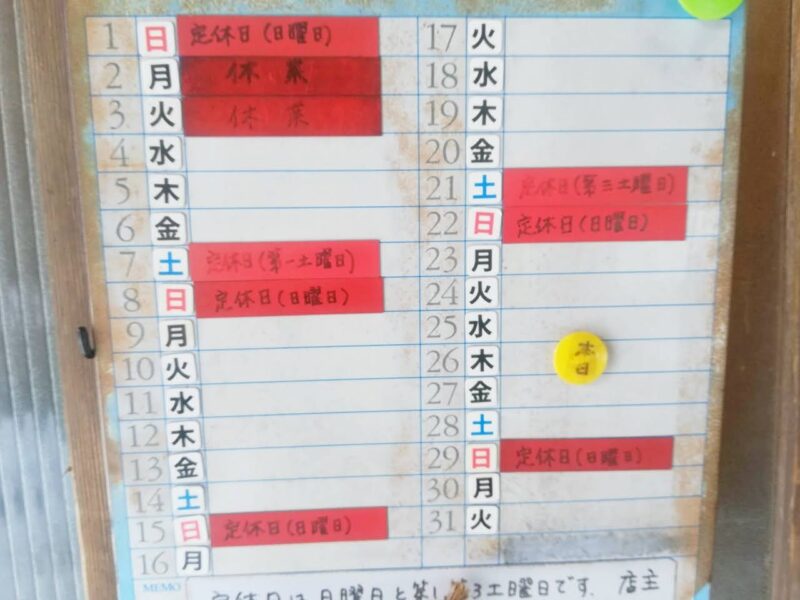 1 日 定休日(日曜日)
2 月 休業
3 火 休業
4 水
5 木
6 金
7 土 定休日(第一土曜日)
8 日 定休日(日曜日)
9 月
10 火
11 水
12 木
13 金
14 土
15 日 定休日(日曜日)
16 月
17 火
18 水
19 木
20 金
21 土 定休日(第三土曜日)
22 日 定休日(日曜日)
23 月
24 火
25 水
26 木 本日
27 金
28 土
29 日 定休日(日曜日)
30 月
31 火
MEMO 定休日は日曜日と第1,第3土曜日です. 店主